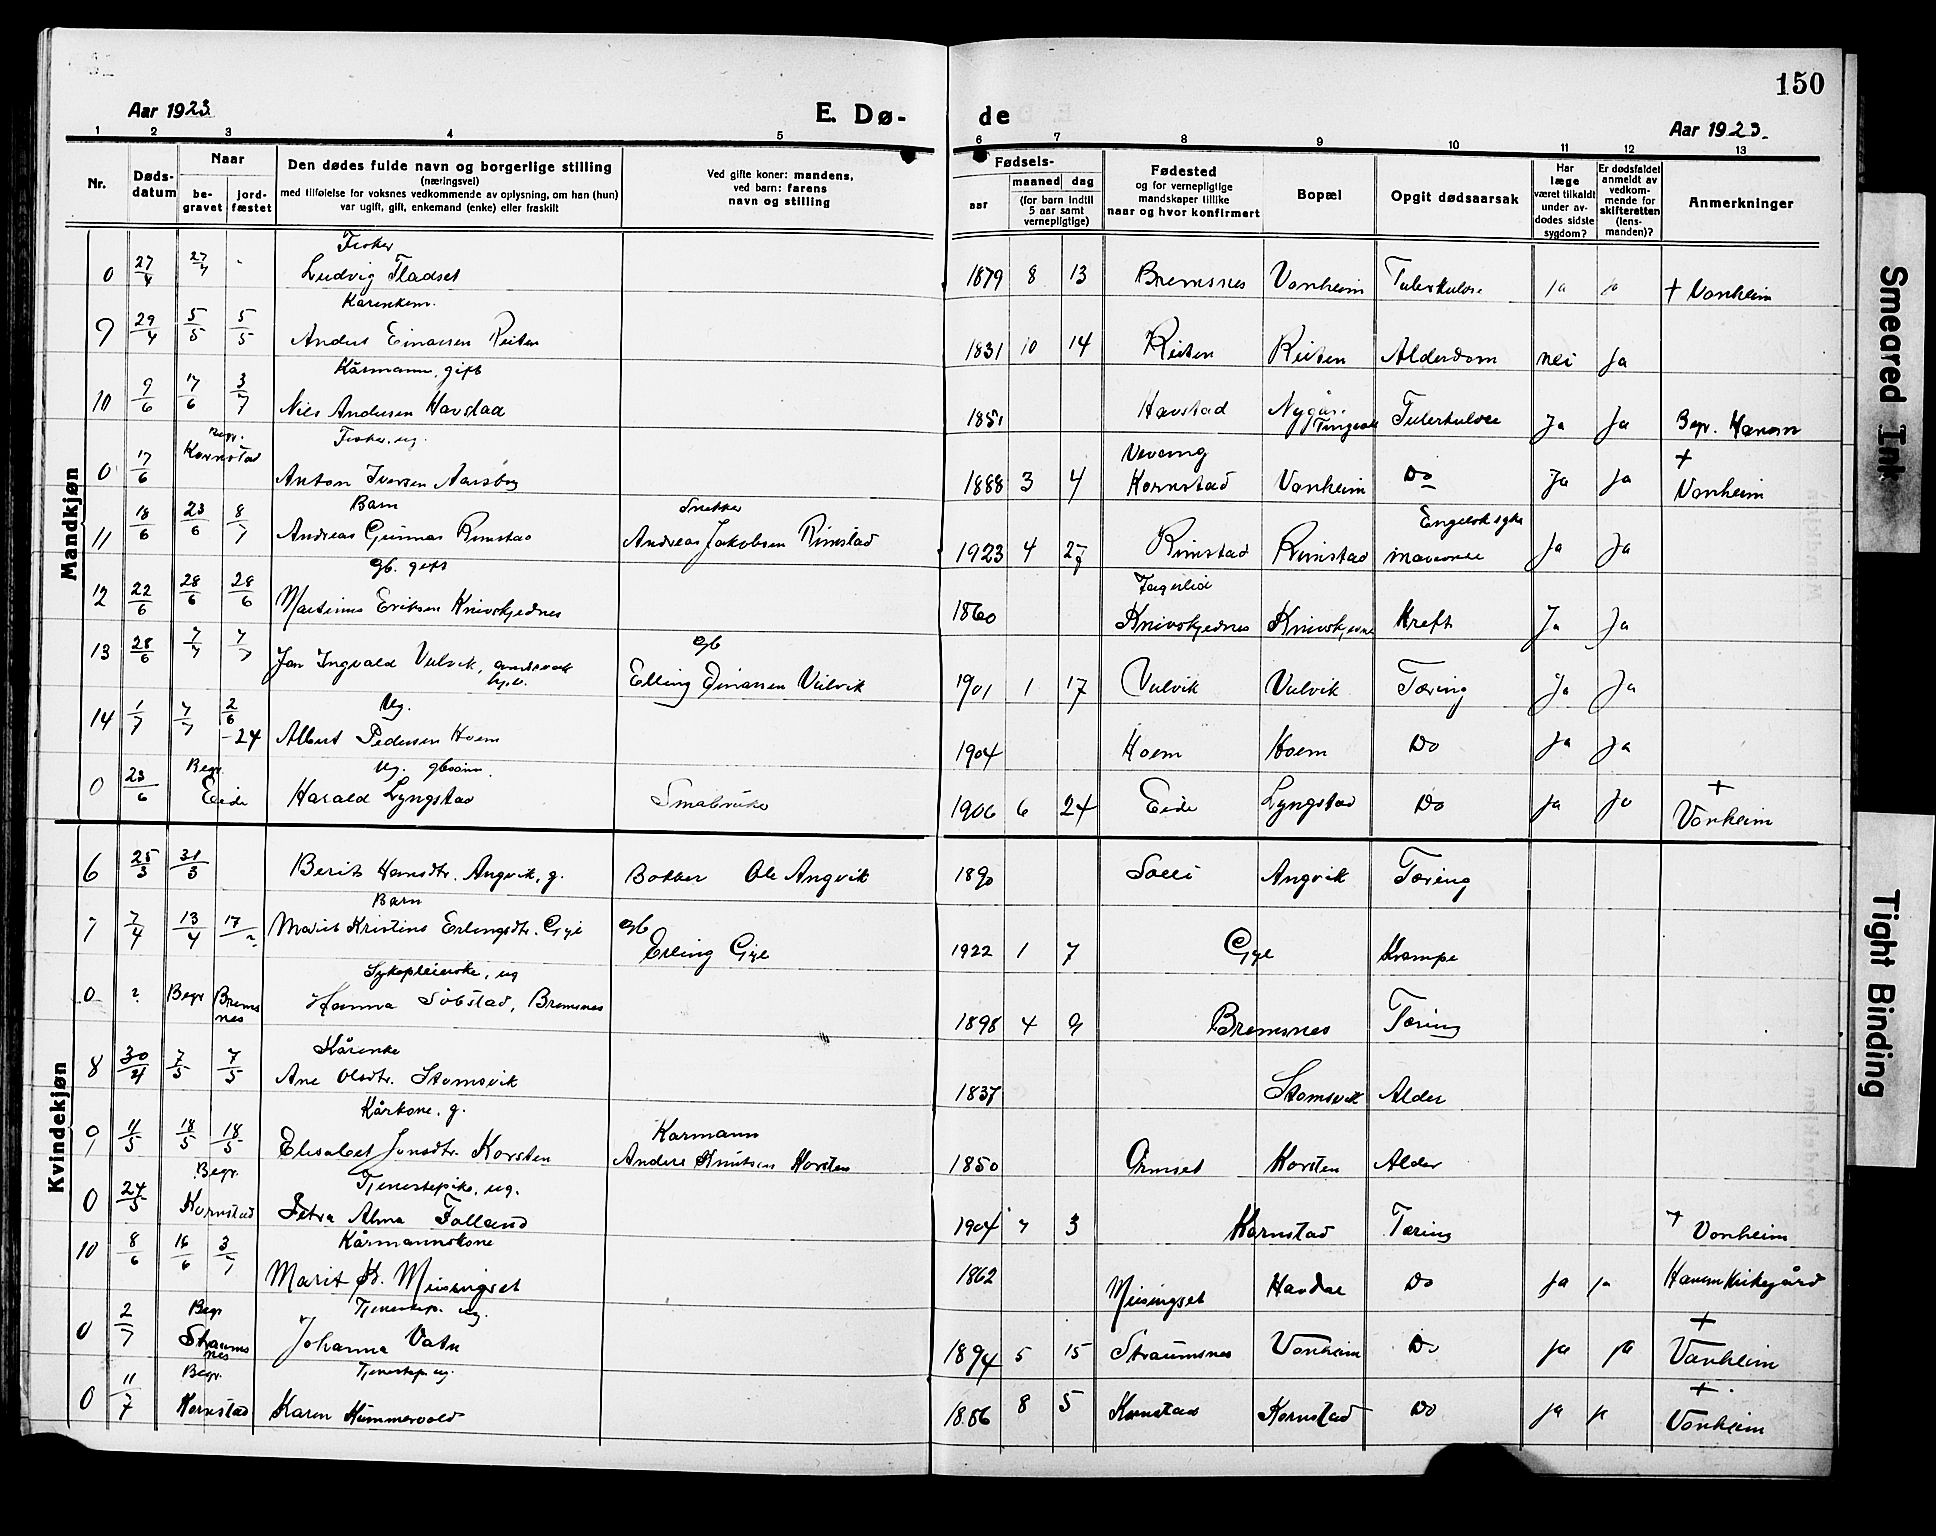 150
Aar 1923.
E. Dø-
de
Aar 1923.
1 2 3 4 5 6 7 8 9 10 11 12 13
Nr.
Døds-
datum
Naar
be-
gravet
jord-
fæstet
Den dødes fulde navn og borgerlige stilling
(næringsvei)
med tilføielse for voksnes vedkommende av oplysning, om han (hun)
var ugift, gift, enkemand (enke) eller fraskilt
Ved gifte koner: mandens,
ved barn: farens
navn og stilling
Fødsels-
aar
maaned dag
(for barn indtil
5 aar samt
vernepligtige)
Fødested
og for vernepligtige
mandskaper tillike
naar og hvor konfirmert
Bopæl
Opgit dødsaarsak
Har
læge
været tilkaldt
under av-
dødes sidste
sygdom?
Er dødsfaldet
anmeldt av
vedkom-
mende for
skifteretten
(lens-
manden)?
Anmerkninger
Mandkjøn
Fisker
0 27/4 27/4 - Ludvig Fladset 1879 8 13 Bremsnes Vonheim Tuberkulose ja ja + Vonheim
Kårenkem.
9 29/4 5/5 5/5 Anders Einarsen Reiten 1831 10 14 Reiten Reiten Alderdom nei ja
Kårmann, gift
10 9/6 17/6 3/7 Nils Andersen Havstad 1851 Havstad Nygår. Tingvoll Tuberkulose Ja Ja Begr. Hanem
Begr. Kornstad
Fisker, ug.
0 17/6 Anton Iversen Aarsbog 1888 3 4 Vevang Kornstad Vonheim Do Ja Ja + Vonheim
Barn
11 18/6 23/6 8/7 Andreas Gunnar Rimstad Snekker Andreas Jakobsen Rimstad 1923 4 27 Rimstad Rimstad Engelsk syke Ja Ja
Gb. gift
12 22/6 28/6 28/6 Martinus Eriksen Knivskjednes 1860 Fagerlid Knivskjednes Knivskjedne Kreft Ja Ja
13 28/6 7/7 7/7 Jon Ingvald Vulvik, Gb Elling Einarsen Vulvik 1901 1 17 Vulvik Vulvik Tæring Ja Ja
Ug.
14 1/7 7/7 2/6 -24 Albert Pedersen Hoem 1904 Hoem Hoem Do Ja Ja
Ug. gbsønn.
0 23/6 Begr. Eide Harald Lyngstad Småbruker 1906 6 24 Eide Lyngstad Do Ja Ja + Vonheim
Kvindekjøn
6 25/3 31/3 Berit Hansdtr. Angvik, g. Bøkker Ole Angvik 1890 Solli Angvik Tæring
Barn
7 7/4 13/4 17/? Marit Kristine Erlingsdtr. Gyl Gb Erling Gyl 1922 1 7 Gyl Krampe
Sykepleierske, ug
0 ? Begr Bremsnes Hanna Sobstad, Bremsnes 1898 4 9 Bremsnes Tæring
Kårenke
8 30/4 7/5 7/5 Ane Olsdtr. Stomsvik 1837 Stomsvik Alder
Kårkone, g.
9 11/5 18/5 18/5 Elisabet Jonsdtr. Korsten Kårmann Anders Knutsen Korsten 1850 Ormset Korsten Alder
Tjenestepike, ug.
0 24/5 Begr. Kornstad Petra Alma Folland 1904 7 3 Kornstad Tæring + Vonheim
Kårmannskone
10 8/6 16/6 3/7 Marit K. Meisingset 1862 Meisingset Havdal Do Ja ja Hanem Kirkegård
Tjenestep. ug.
0 2/7 Begr Straumsnes Johanna Vatn 1894 5 15 Straumsnes Vonheim Do Ja ja + Vonheim
Tjenestep. ug.
0 11/7 Begr. Kornstad Karen Kummervold 1886 8 5 Kornstad Kornstad Do Ja ja + Vonheim
Smeared Ink
Tight Binding